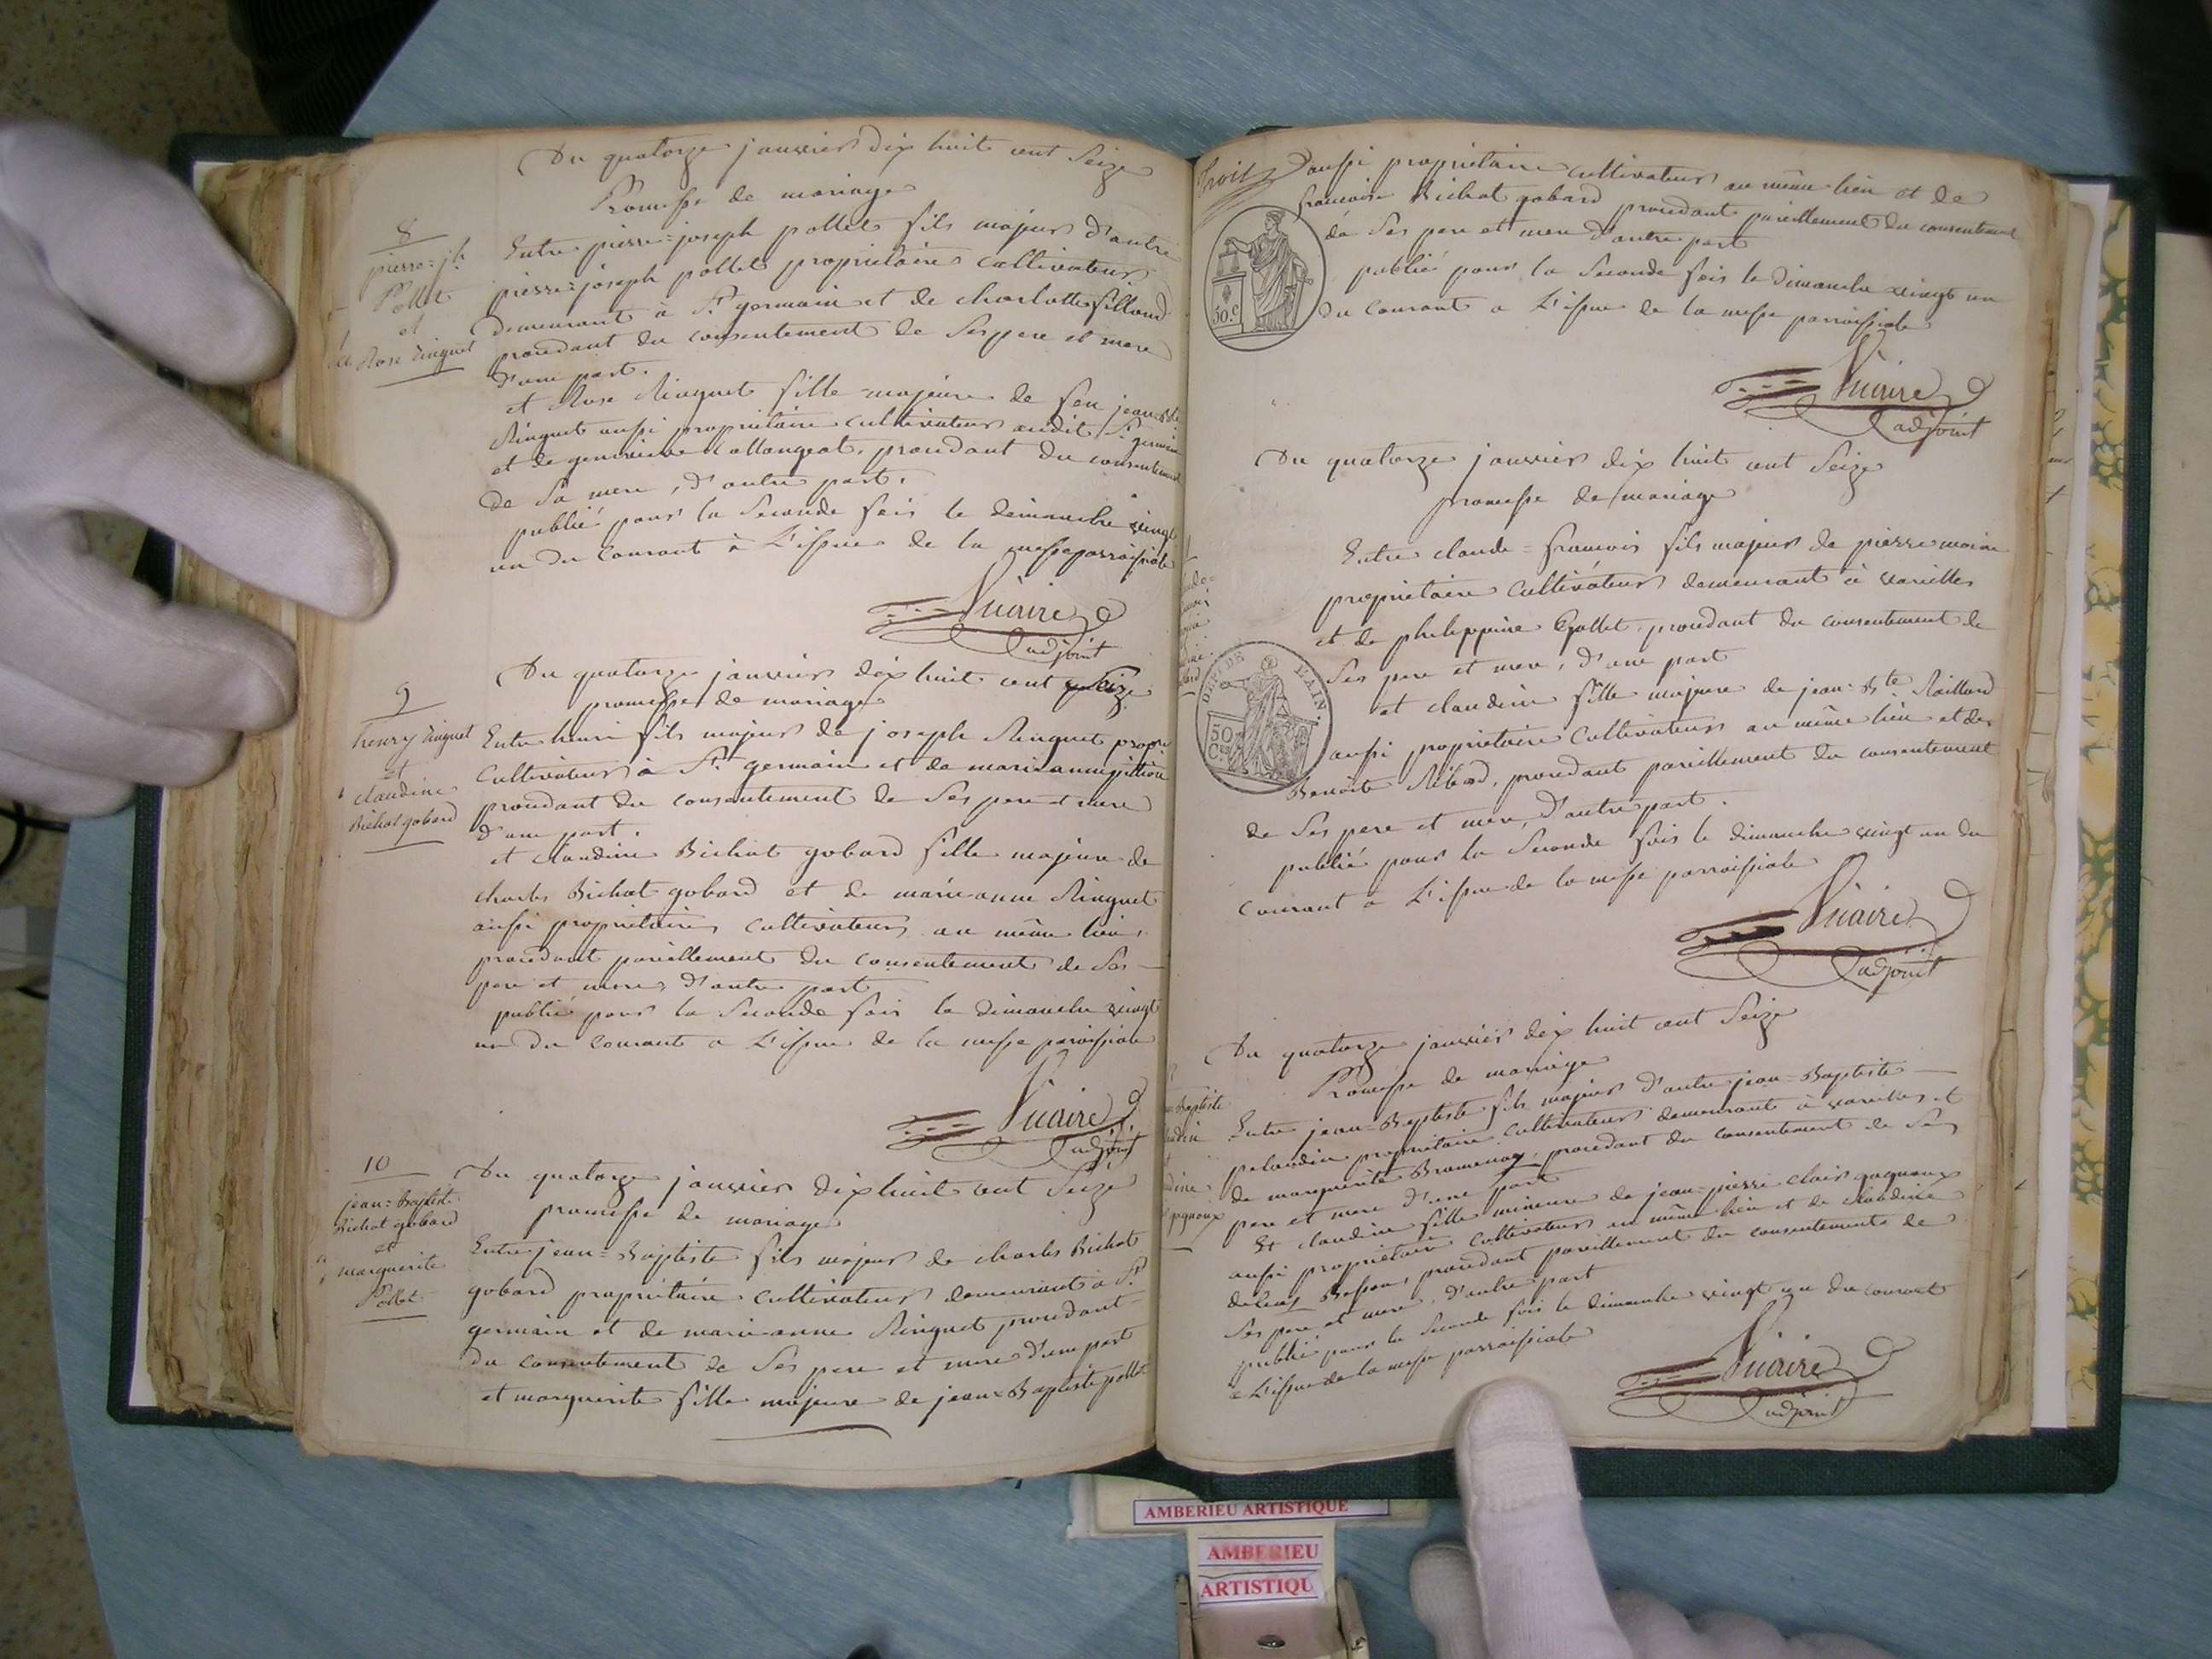 Du quatorze janvier dix huit cent Seize
Promesse de mariage
8
pierre=jh
Pollet
et
Rose Ringuet
Entre pierre=joseph pollet fils majeur d'autre
pierre=joseph pollet propriétaire cultivateur
demeurant à St germain et de charlotte
procedant du consentement de Ses pere et mere
d'une part.
et Rose Ringuet fille majeure de feu jean-Bte
Ringuet aussi propriétaire cultivateur audit St germain
et de genevieve procedant du consentement
de Sa mere, d'autre part.
publié pour la Seconde fois le dimanche vingt
un du Courant à L'issue de la messe parroissiale
Vicaire
adjoint
9
henry Ringuet
et
claudine
Bichat gobard
Du quatorze janvier dix huit cent Seize
promesse de mariage
Entre henri fils majeur de joseph Ringuet propre
Cultivateur à St germain et de marianne
procedant du consentement de Ses pere et mere
d'une part.
et claudine Bichat gobard fille majeure de
charles Bichat gobard et de marianne Ringuet
aussi propriétaires cultivateurs au même lieu,
procedant pareillement du consentement de Ses
pere et mere, d'autre part
publié pour la Seconde fois le dimanche vingt
un du Courant a L'issue de la messe paroissiale
Vicaire
adjoint
10
jean=Baptiste
Bichat gobard
et
marguerite
Pollet
Du quatorze janvier dix huit cent Seize
promesse de mariage
Entre jean=Baptiste fils majeur de charles Bichat
gobard propriétaire cultivateur demeurant à St
germain et de marianne Ringuet procedant
du consentement de Ses pere et mere d'une part
et marguerite fille majeure de jean=Baptiste pollet
aussi propriétaire cultivateur au même lieu et de
francoise Bichat gobard procedant pareillement du consentement
de Ses pere et mere d'autre part
publié pour la Seconde fois le dimanche vingt un
du Courant a L'issue de la messe parroissiale
50.c
Vicaire
adjoint
Du quatorze janvier dix huit cent Seize
promesse de mariage
Entre claude=francois fils majeur de pierre
propriétaire Cultivateur demeurant à vareilles
et de philippine Gollet, procedant du consentement de
Ses pere et mere, d'une part
et claudine fille majeure de jean=Bte Raillard
aussi propriétaire Cultivateur au même lieu et de
Benoite procedant pareillement du consentement
de Ses pere et mere, d'autre part.
publié pour la Seconde fois le dimanche vingt un du
Courant a L'issue de la messe parroissiale
DEPT DE L'AIN.
50
Ces
Vicaire
adjoint
Du quatorze janvier dix huit cent Seize
Promesse de mariage
Entre jean=Baptiste fils majeur d'autre jean=Baptiste
palandin propriétaire cultivateur demeurant à vareilles et
de marguerite procedant du consentement de Ses
pere et mere d'une part
Et claudine fille mineure de jean=pierre clair gagneux
aussi propriétaire Cultivateur au même lieu et de claudine
procedant pareillement du consentement de
Ses pere et mere, d'autre part
publié pour la Seconde fois le dimanche vingt un du courant
a L'issue de la messe parroissiale
Vicaire
adjoint
AMBERIEU ARTISTIQUE
AMBERIEU
ARTISTIQU